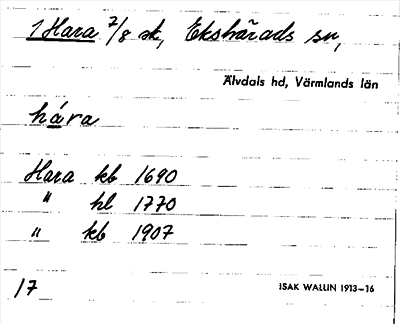 1 Hara 7/8 sk, Ekshärads sn,
Älvdals hd, Värmlands län
hára
Hara kb 1690
" hl 1770
" kb 1907
17
ISAK WALLIN 1913–16